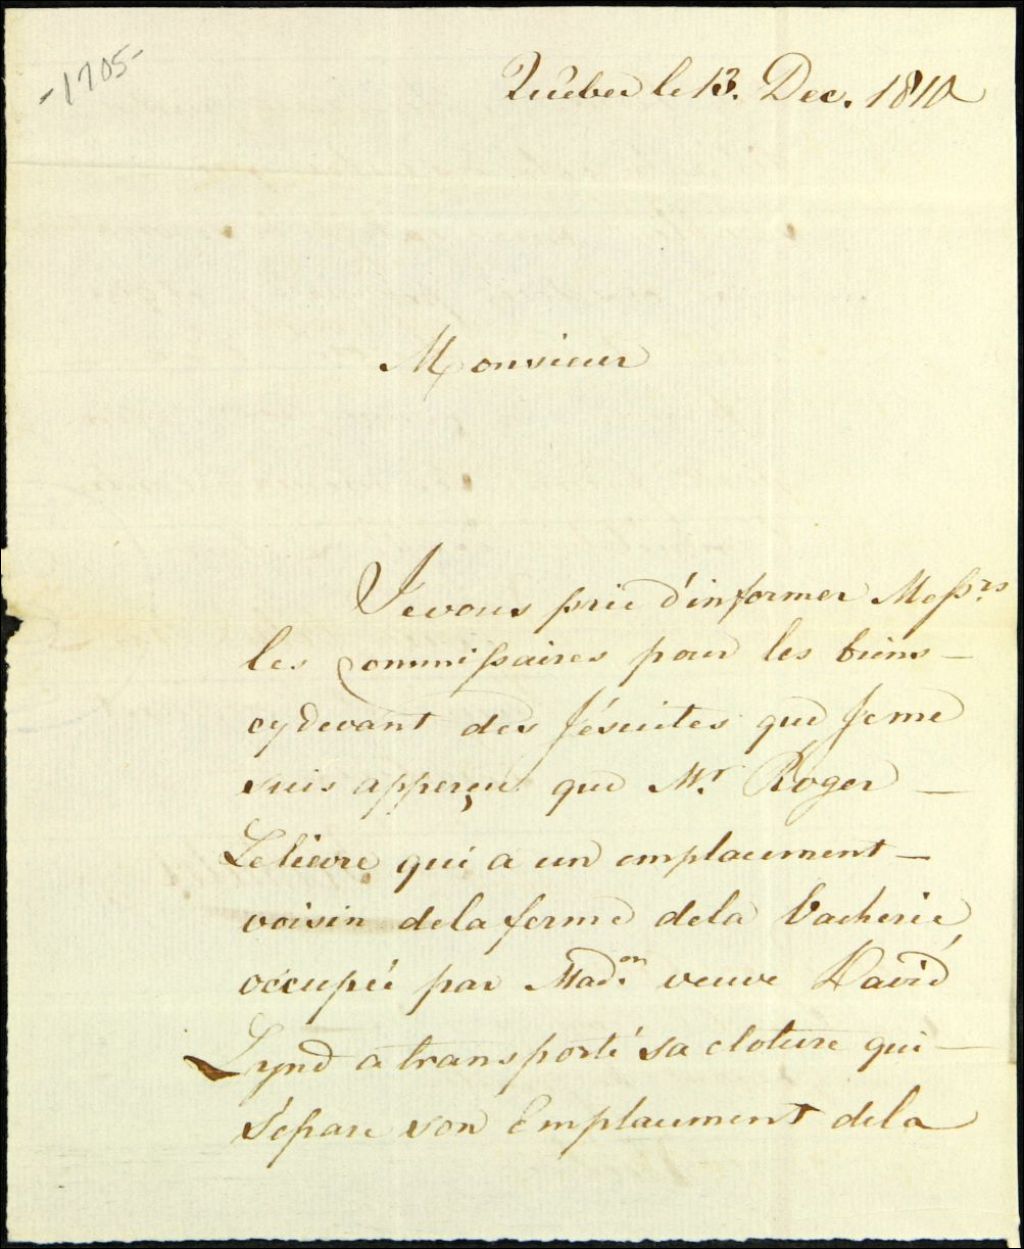 -1705-
Québec le 13. Dec. 1810
Monsieur
Je vous prie d'informer Messrs
les Commissaires pour les biens
cydevant des Jésuites que Je me
suis apperçu que Mr. Roger
Lelievre qui a un emplacement
voisin de la ferme de la Vacherie
occupée par Mad. veuve David
Lynd a transporté sa cloture qui
Sépare son Emplacement de la